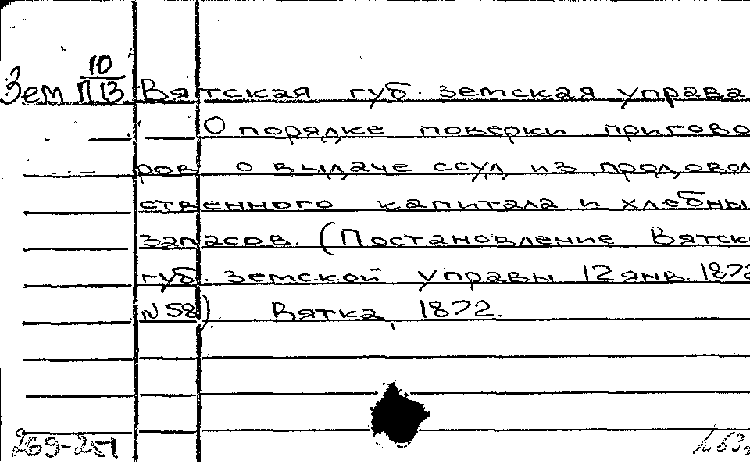 10
Зем П13 Вятская губ. земская управа
О порядке поверки пригово
ров о выдаче ссуд из продовол
ственного капитала и хлебны
запасов. (Постановление Вятск
губ. земской управы 12 янв. 1872
N 58) Вятка, 1872.
269-251